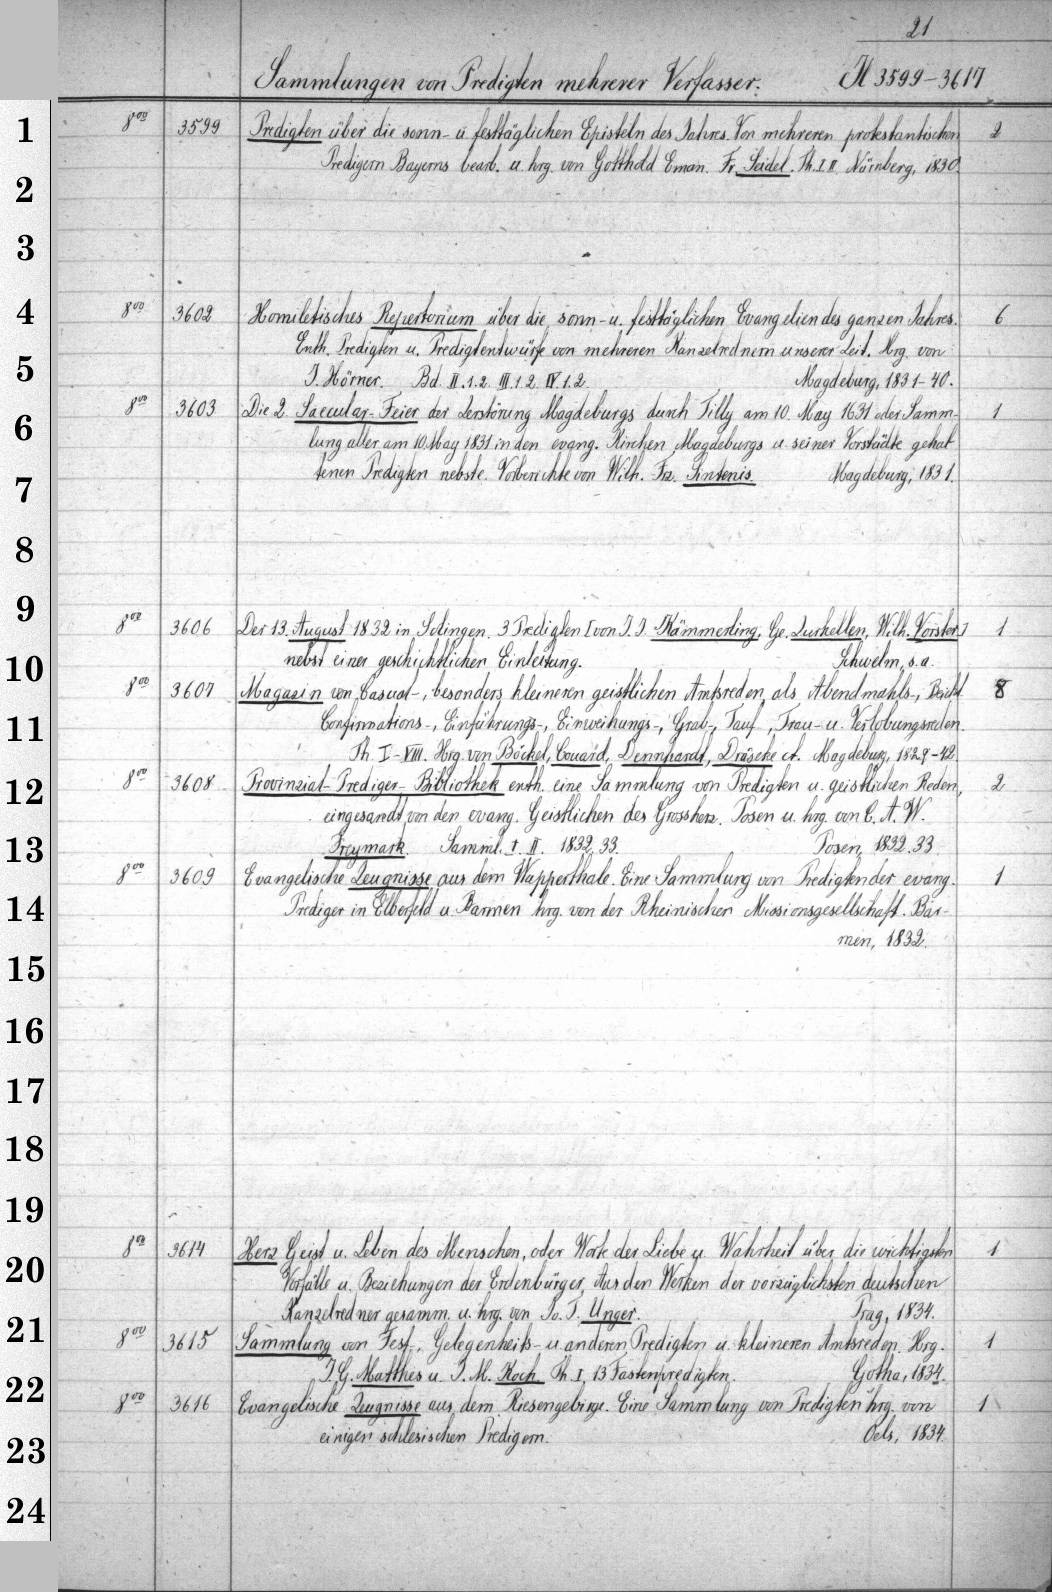 21
Sammlungen von Predigten mehrerer Verfasser. H 3599-3617
1
8vo 3599 Predigten über die sonn- u. festtäglichen Episteln des Jahres. Von mehreren protestantischen 2
Predigern Bayerns bearb. u. hrg. von Gotthold Eman. Fr. Seidel. Th. I II. Nürnberg, 1830.
2
3
4
8vo 3602 Homiletisches Repertorium über die sonn- u. festtäglichen Evangelien des ganzen Jahres. 6
Enth. Predigten u. Predigtentwürfe von mehreren Kanzelrednern unserer Zeit. Hrg. von
5
J. Hörner. Bd. II.1.2. III.1.2. IV.1.2. Magdeburg, 1831-40.
8vo 3603 Die 2. Saecular-Feier der Zerstörung Magdeburgs durch Tilly am 10. May 1631 oder Samm- 1
6
lung aller am 10. May 1831 in den evang. Kirchen Magdeburgs u. seiner Vorstädte gehal
tenen Predigten nebst e. Vorberichte von Wilh. Frz. Sintenis. Magdeburg, 1831.
7
8
9
8vo 3606 Der 13. August 1832 in Solingen. 3 Predigten [von J. J. Kämmerling, Ge. Zurhellen, Wilh. Vorster] 1
nebst einer geschichtlichen Einleitung. Schwelm, s.a.
10
8vo 3607 Magazin von Casual-, besonders kleineren geistlichen Amtsreden, als Abendmahls-, Beicht. 8
11
Confirmations-, Einführungs-, Einweihungs-, Grab-, Tauf-, Trau- u. Verlobungsreden.
Th. I-VIII. Hrg. von Böckel, Couard, Dennhardt, Dräseke et. Magdeburg, 1829-42.
12
8vo 3608 Provinzial-Prediger-Bibliothek enth. eine Sammlung von Predigten u. geistlichen Reden, 2
eingesandt von den evang. Geistlichen des Grossherz. Posen u. hrg. von C. A. W.
13
Freymark. Samml. I. II. 1832.33. Posen, 1832.33
8vo 3609 Evangelische Zeugnisse aus dem Wupperthale. Eine Sammlung von Predigten der evang. 1
14
Prediger in Elberfeld u. Barmen hrg. von der Rheinischen Missionsgesellschaft. Bar-
men, 1832.
15
16
17
18
19
8vo 3614 Herz Geist u. Leben des Menschen, oder Worte der Liebe u. Wahrheit über die wichtigsten 1
20
Vorfälle u. Beziehungen der Erdenbürger, Aus den Werken der vorzüglichsten deutschen
Kanzelredner gesamm. u. hrg. von Jo. J. Unger. Prag, 1834.
21
8vo 3615 Sammlung von Fest-, Gelegenheits- u. anderen Predigten u. kleineren Amtsreden. Hrg. 1
J. G. Matthes u. J. M. Koch. Th. I, 13 Fastenpredigten. Gotha, 1834.
22
8vo 3616 Evangelische Zeugnisse aus dem Riesengebirge. Eine Sammlung von Predigten hrg. von 1
einigen schlesischen Predigern. Oels, 1834.
23
24